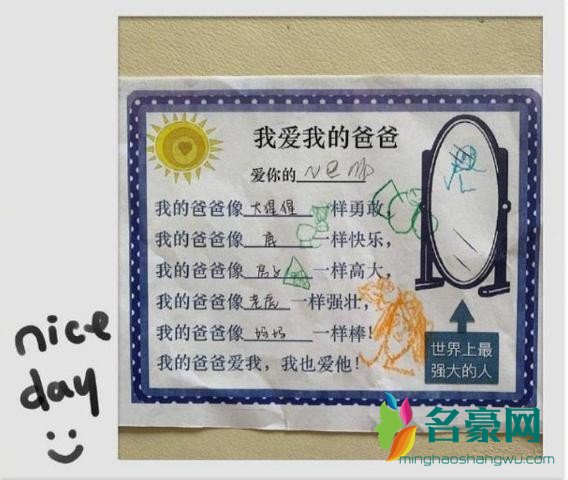 我爱我的爸爸
爱你的
我的爸爸像大猩猩一样勇敢,
我的爸爸像鹿一样快乐,
我的爸爸像房子一样高大,
我的爸爸像老虎一样强壮,
我的爸爸像妈妈一样棒!
我的爸爸爱我，我也爱他!
世界上最
强大的人
nice
day
名豪网
minghaoshangwu.com